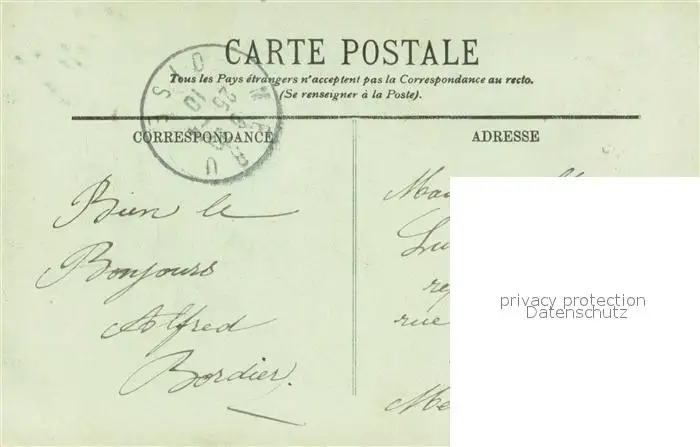 CARTE POSTALE
Tous les Pays étrangers n'acceptent pas la Correspondance au recto.
(Se renseigner à la Poste).
CORRESPONDANCE
ADRESSE
MERU
OISE
Bien le
Bonjours
Alfred
Bordier.
rue
privacy protection
Datenschutz